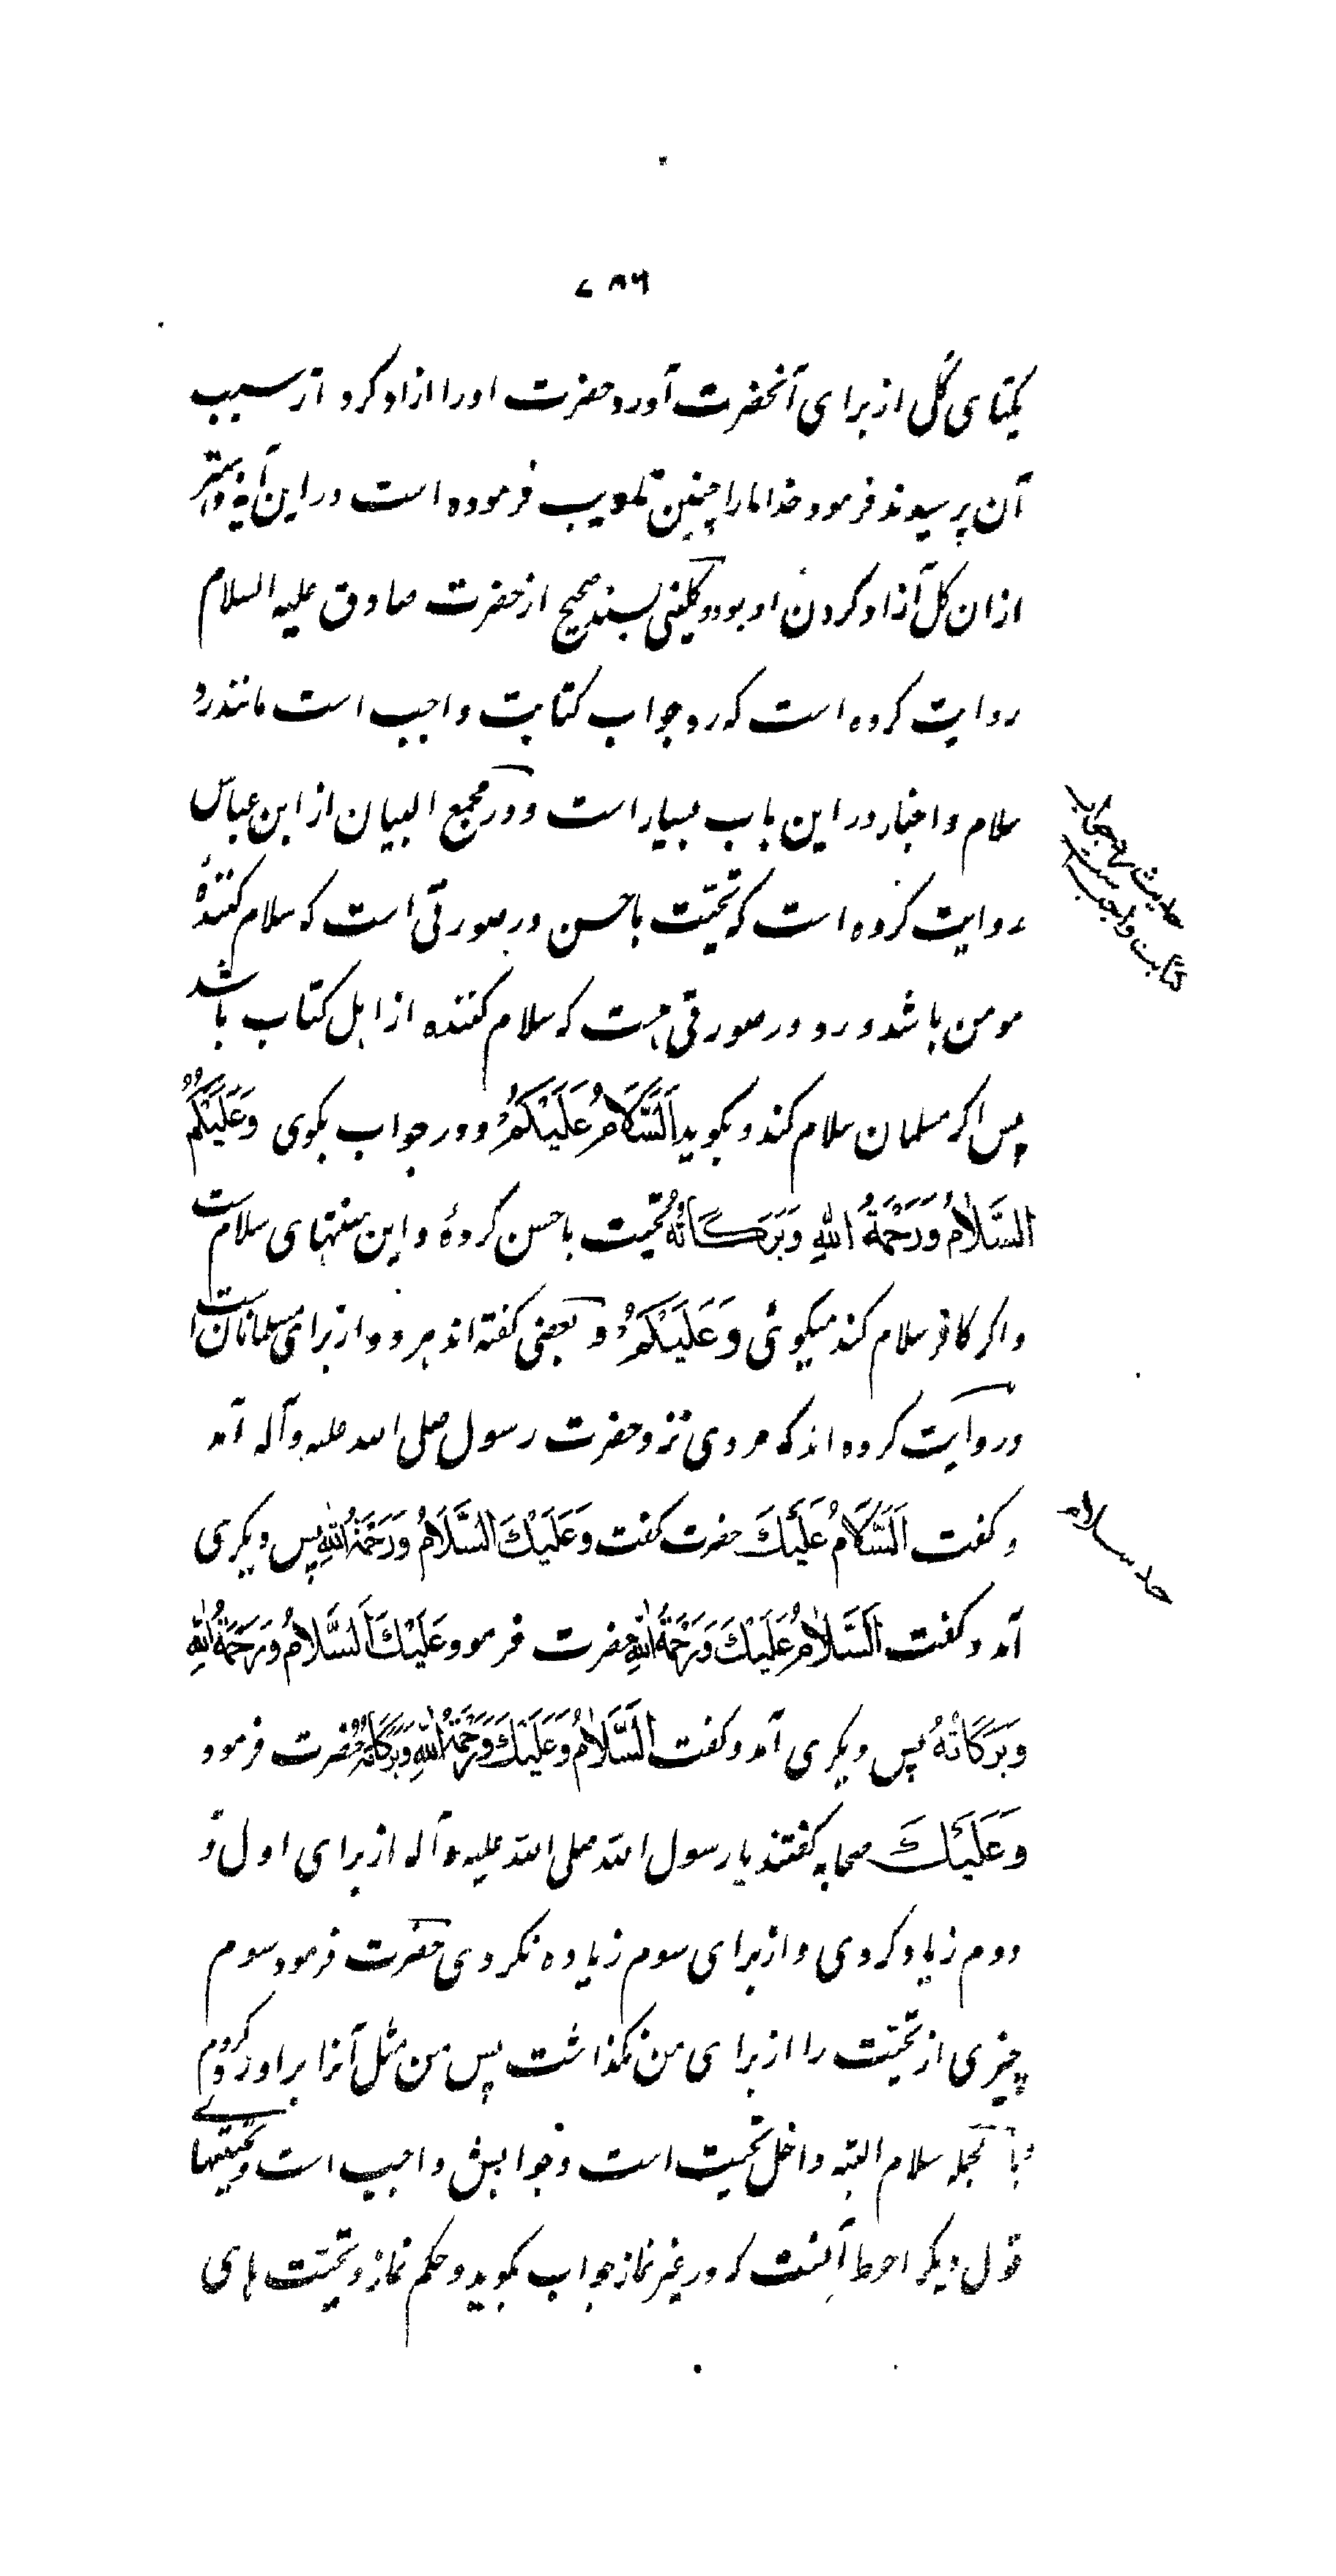 ۷۸۶
یکتای گل از برای آنحضرت آورد حضرت اورا ازاد کرد از سبب
آن پرسیدند فرمود خدا مارا چنین تادیب فرموده است در این آیه و بهتر
ازان کل آزاد کردن او بود و کلینی بسند صحیح از حضرت صادق علیه السلام
روایت کرده است که رد جواب کتابت واجب است مانند رد
سلام و اخبار در این باب بسیار است و در مجمع البیان از ابن عباس
روایت کرده است که تحیّت باحسن در صورتی است که سلام کنندهٔ
مومن باشد و رد در صورتی است که سلام کننده از اهل کتاب باشد
پس اکر مسلمان سلام کند و بکوید اَلسَّلَامُ عَلَیْکُمْ و در جواب بکوی وَعَلَیْکُمُ
السَّلَامُ وَرَحْمَةُ اللهِ وَبَرَکَاتُهُ تحیت باحسن کردهٔ و این منتهای سلامست
و اکر کافر سلام کند میکوئی وَعَلَیْکُمْ و بعضی کفته اند هر دو از برای مسلمانان است
و روایت کرده اند که مردی نزد حضرت رسول صلی الله علیه و آله آمد
و کفت اَلسَّلَامُ عَلَیْکَ حضرت کفت وَعَلَیْکَ السَّلَامُ وَرَحْمَةُ اللهِ پس دیکری
آمد و کفت اَلسَّلَامُ عَلَیْکَ وَرَحْمَةُ اللهِ حضرت فرمود وَعَلَیْکَ اَلسَّلَامُ وَرَحْمَةُ اللهِ
وَبَرَکَاتُهُ پس دیکری آمد و کفت اَلسَّلَامُ وَعَلَیْکَ وَرَحْمَةُ اللهِ وَبَرَکَاتُهُ حضرت فرمود
وَعَلَیْکَ صحابه کفتند یا رسول الله صلی الله علیه و آله از برای اول و
دوم زیاد کردی و از برای سوم زیاده نکردی حضرت فرمود سوم
چیزی از تحیّت را از برای من نکذاشت پس من مثل آنرا بر او رد کردم
و بالجمله سلام البته داخل تحیت است و جوابش واجب است و تحیتها
قول دیکر احوط آنست که در غیر نماز جواب بکوید و حکم نماز و تحیّت های
کتابت واجب است
حد سلام